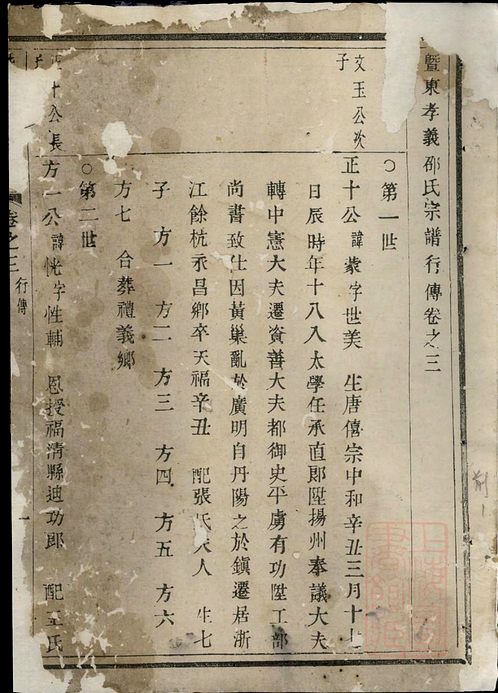 暨東孝義邵氏宗譜行傳卷之三
○第一世
文玉公次子
正十公諱蒙字世美 生唐僖宗中和辛丑三月十七
日辰時年十八入太學任承直郎陞揚州奉議大夫
轉中憲大夫遷資善大夫都御史平虜有功陞工部
尚書致仕因黃巢亂於廣明自丹陽之於鎮遷居浙
江餘杭永昌鄉卒天福辛丑 配張氏夫人 生七
子 方一 方二 方三 方四 方五 方六
方七 合葬禮義鄉
○第二世
正十公長子
方一公諱恍字性輔 恩授福清縣迪功郎 配王氏
卷之三 行傳